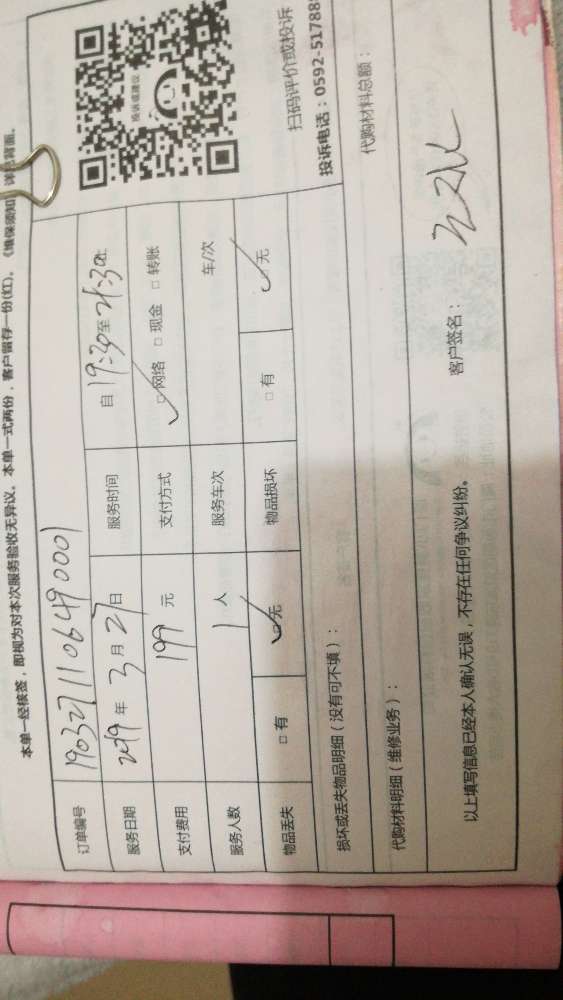 本单一经核签，即视为对本次服务验收无异议。本单一式两份，客户留存一份(红)。《维保须知》详见背面。
订单编号 1903271106490001
服务日期 2019 年 3 月 27 日 服务时间 自 19:30 至 21:30 止
支付费用 199 元 支付方式 ☑网络 □现金 □转账
服务人数 1 人 服务车次 车/次
物品丢失 □有 ☑无 物品损坏 □有 ☑无
投诉或建议
扫码评价或投诉
投诉电话：0592-51788
损坏或丢失物品明细（没有可不填）：
代购材料明细（维修业务）： 代购材料总额：
以上填写信息已经本人确认无误，不存在任何争议纠纷。 客户签名：